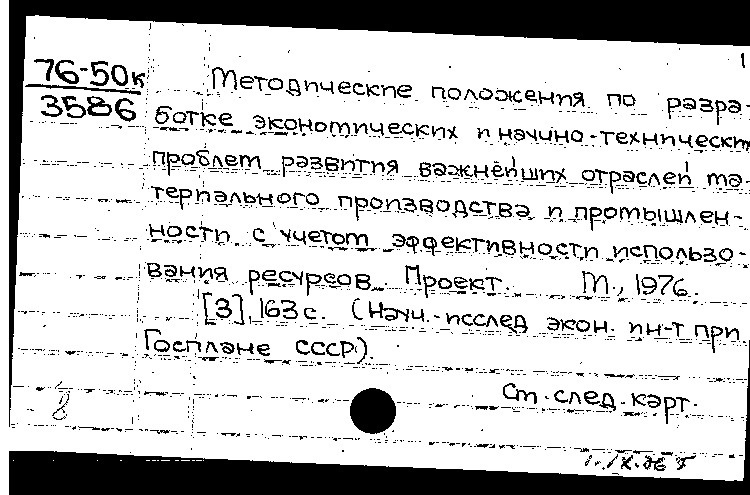 1
76-50к
3586
Методические положения по разра-
ботке экономических и научно-технических
проблем развития важнейших отраслей ма-
териального производства и промышлен-
ности с учетом эффективности использо-
вания ресурсов. Проект. М., 1976.
[3], 163 с. (Науч.-исслед экон. ин-т при
Госплане СССР).
См. след. карт.
8